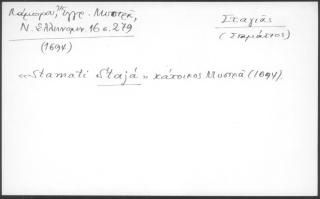 Λάμπρου, Έγγρ. Μυστρᾶ,
Ν. Ἑλληνομν. 16 σ. 279
(1694)
Σταγιάς
(Σταμάτιος)
«Stamati Stajá» κάτοικος Μυστρᾶ (1694).